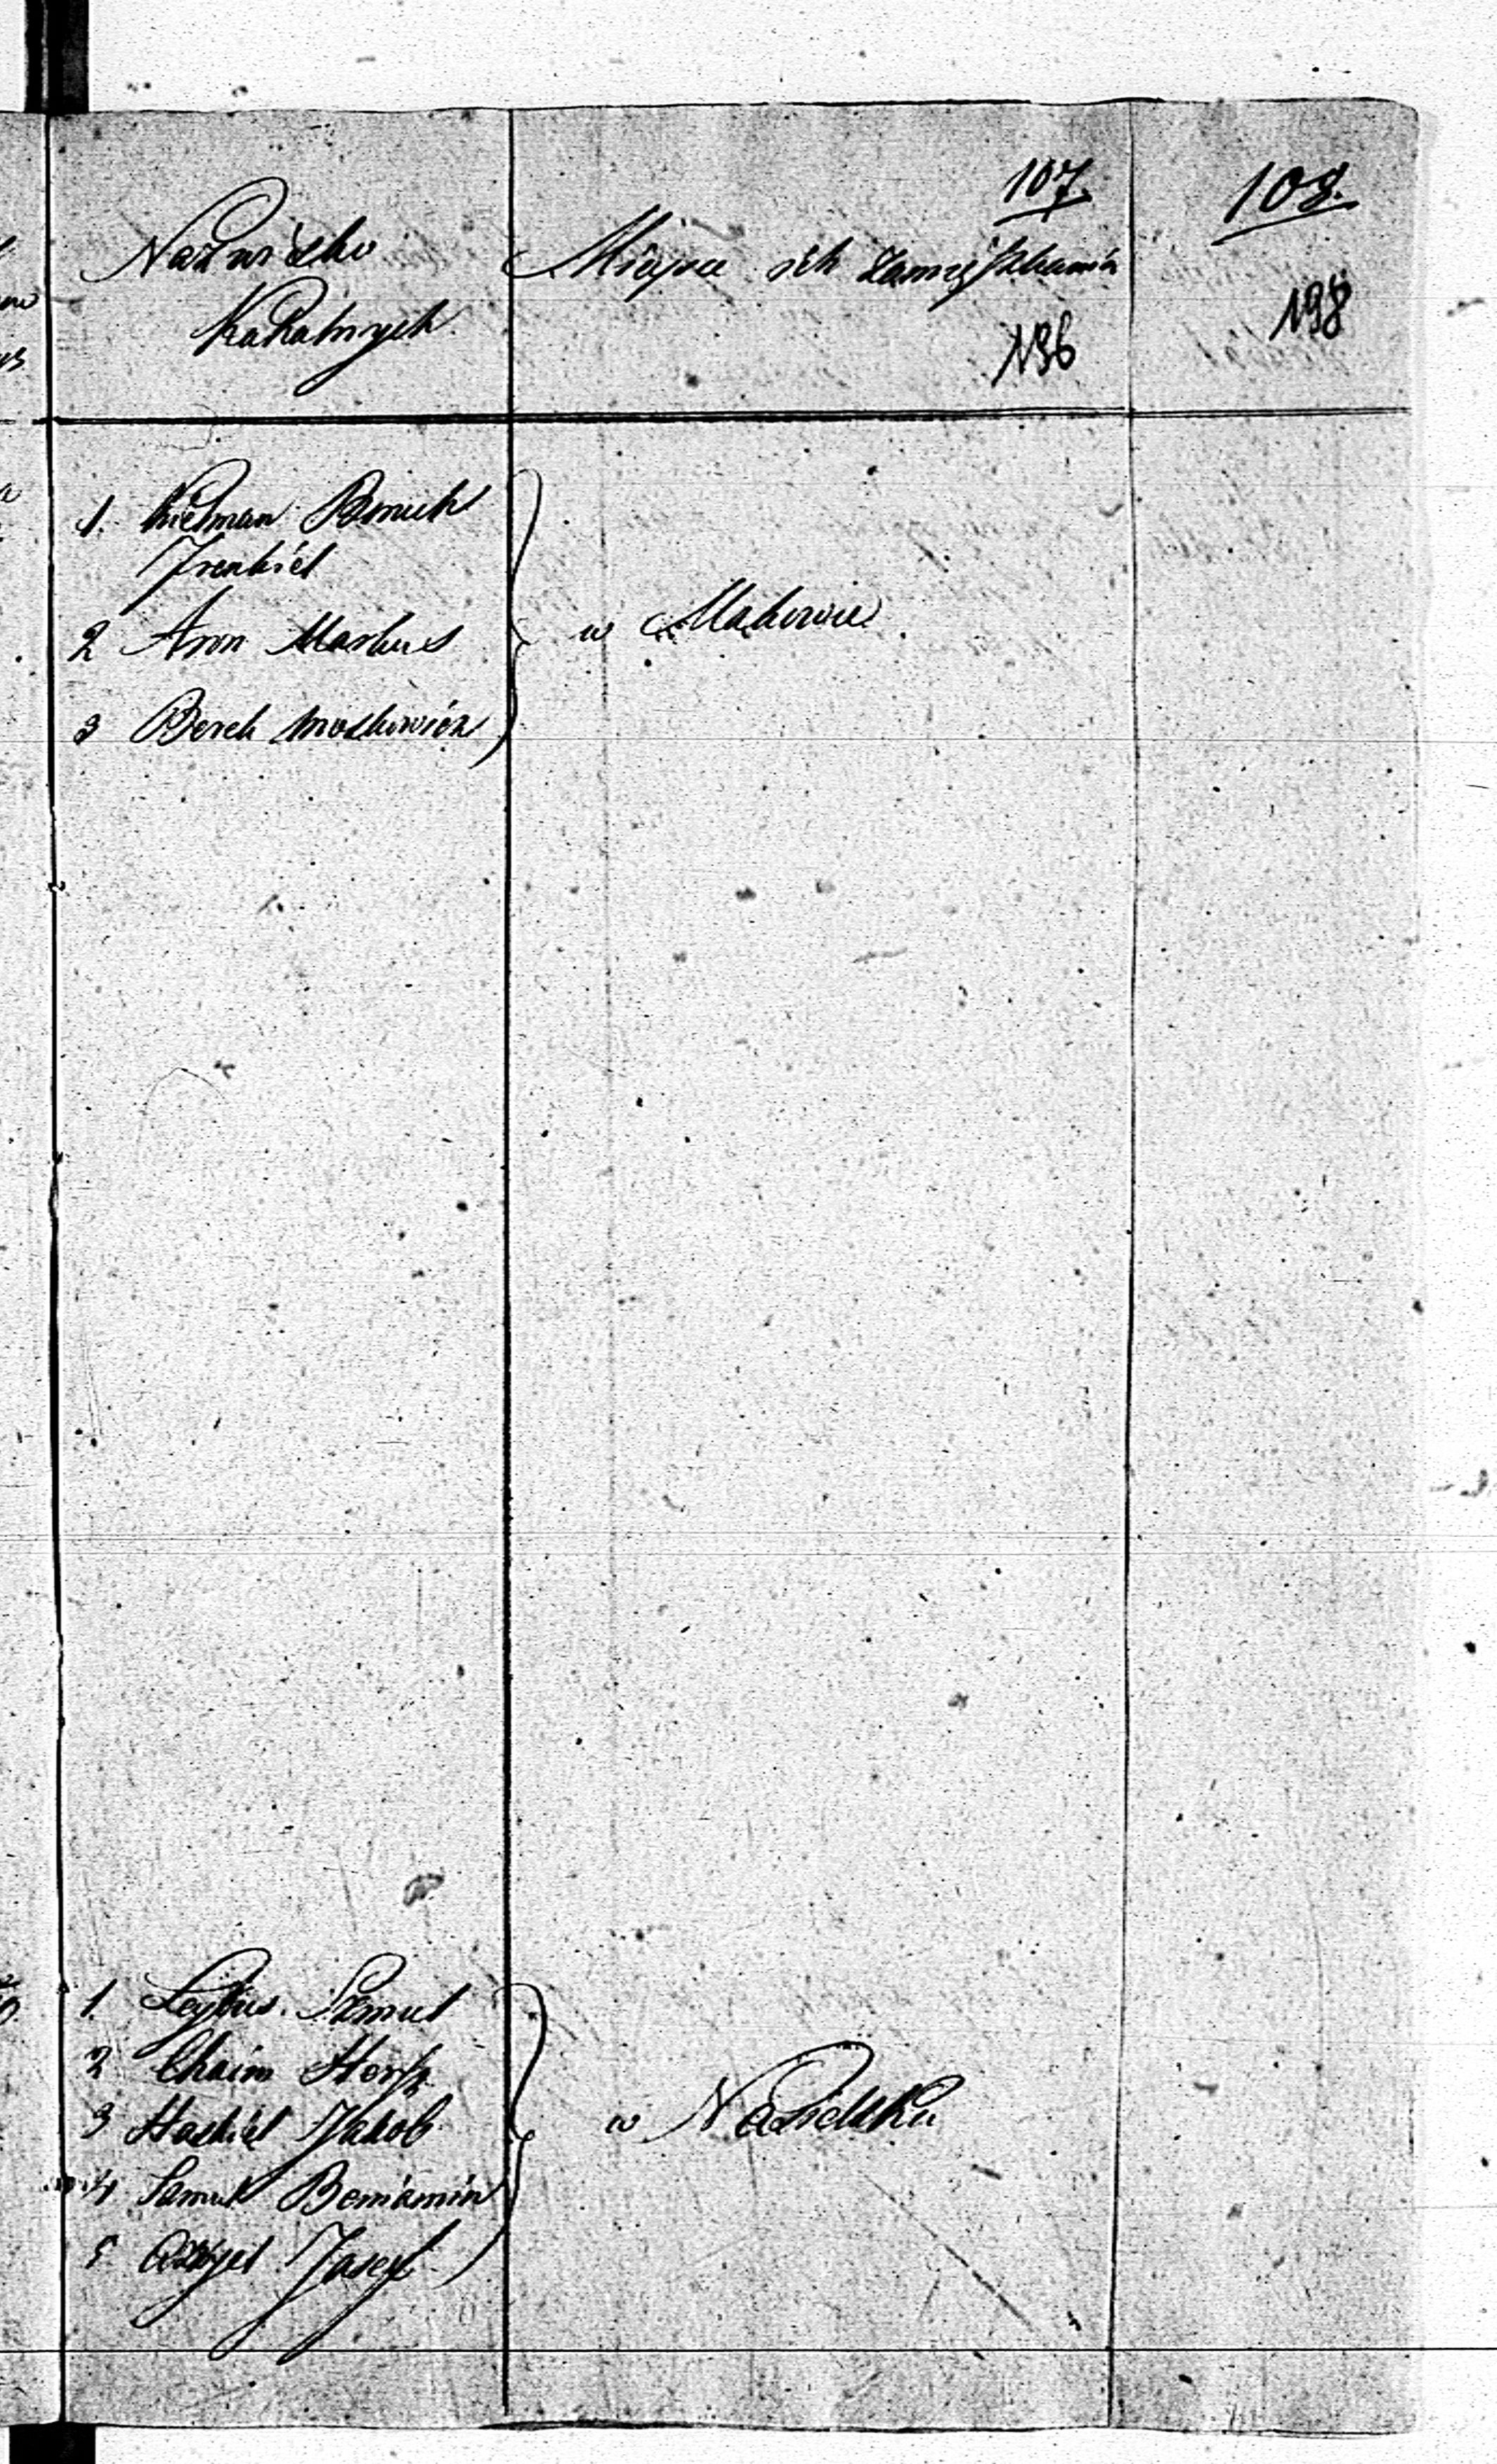 107.
108.
Nazwisko
Kahalnych
Miejsce ich zamięszkania
196
198
1. Kielman Boruch
Frenkiel
2 Aron Markus
3 Berek Moszkowicz
w Makowie
1. Leybus Szmul
2 Chaim Hersz
3 Haskiel Jakob
4 Szmul Beniamin
5 Jasef
w Nasielsku